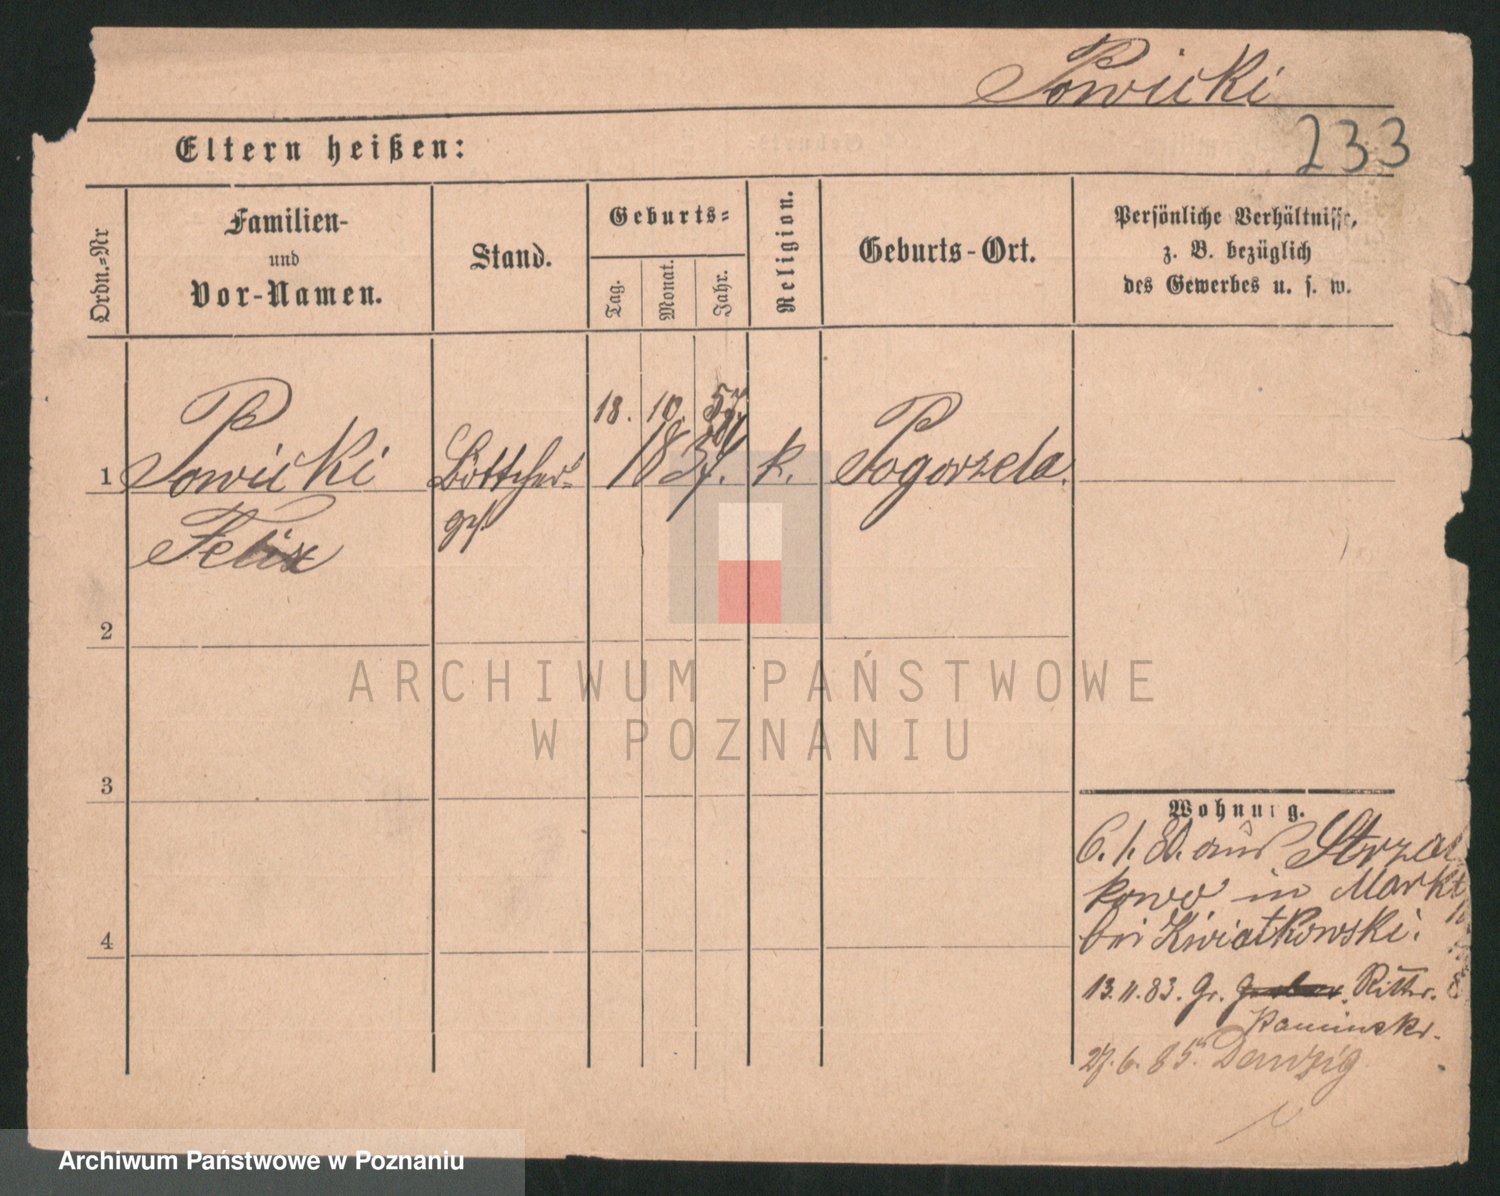 Powicki
233
Eltern heißen:
Ordn.=Nr
Familien-
und
Vor-Namen.
Stand.
Geburts=
Tag.
Monat.
Jahr.
Religion.
Geburts-Ort.
Persönliche Verhältnisse,
z. B. bezüglich
des Gewerbes u. s. w.
18. 10. 57
1 Powicki Böttcher= k. Pogorzela.
Felix
2
3
4
Wohnung.
6. 1. 80. aus Strzał
kowo in Markt
bei Kwiatkowski.
13. 11. 83. Gr. Ritter.
Kaminski.
27. 6. 85. Danzig
ARCHIWUM PAŃSTWOWE
W POZNANIU
Archiwum Państwowe w Poznaniu